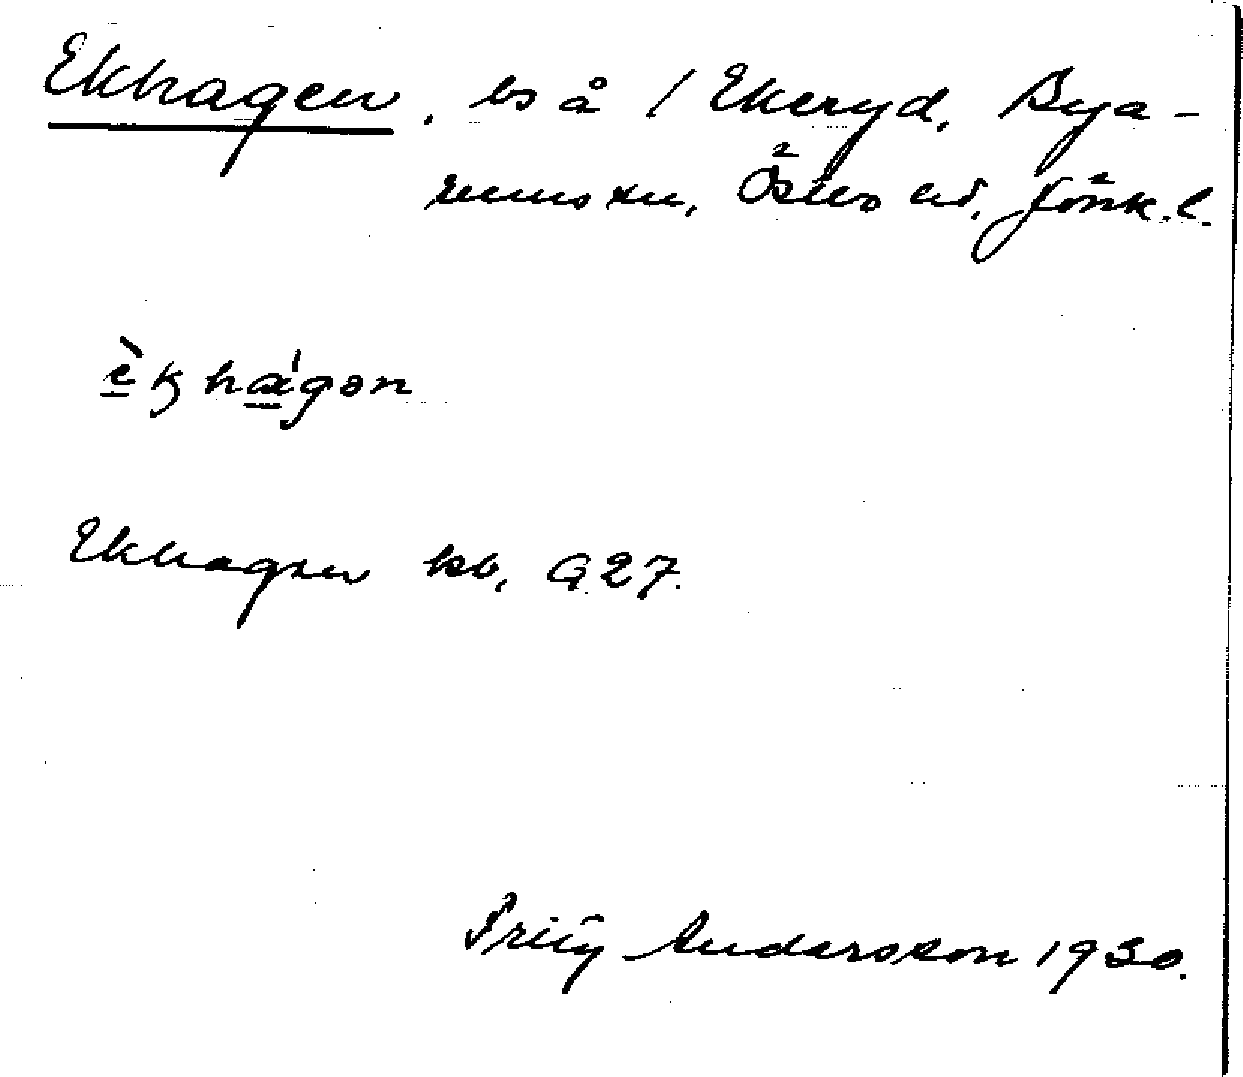 Ekhagen, bs å / Ekeryd, Bya-
rums sn, Östbo hd, Jönk. l.
èk hágən
Ekhagen kb, G 27.
Fritz Andersson 1930.